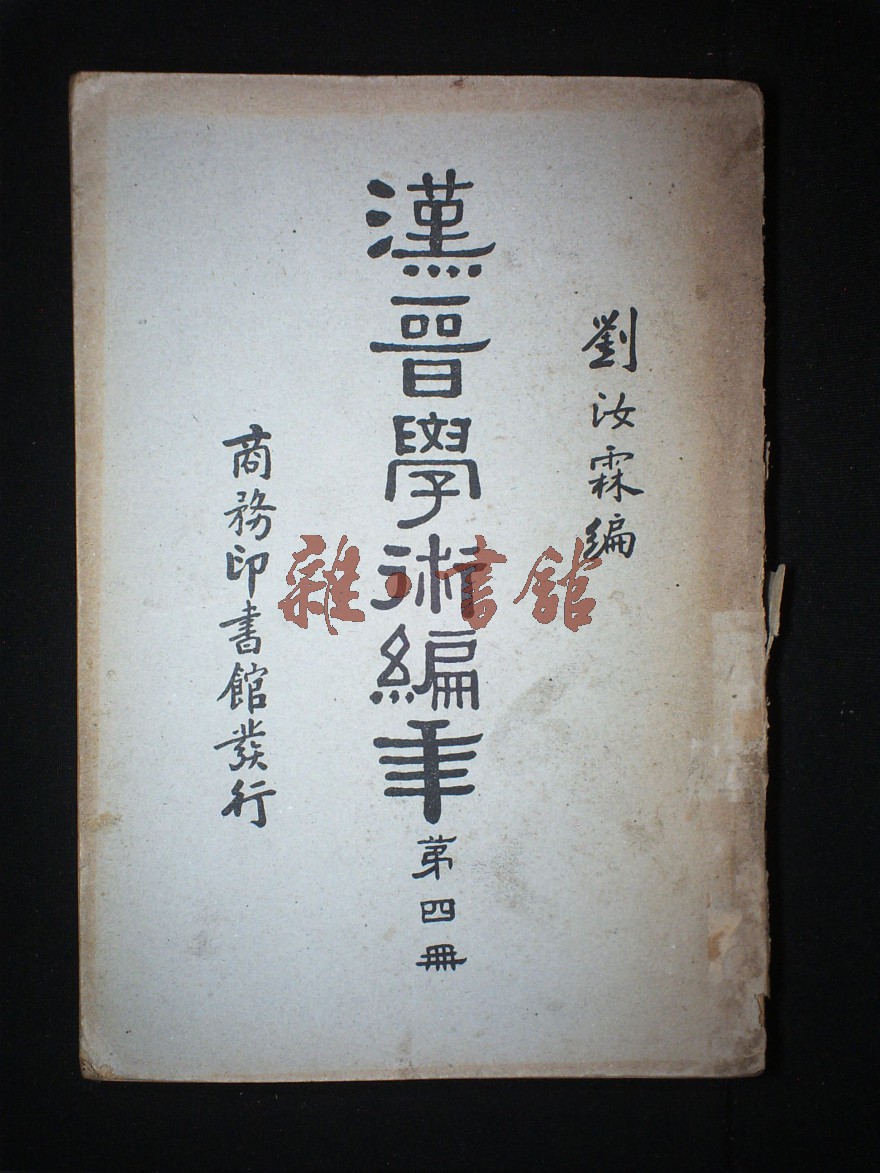 劉汝霖編
漢晉學術編年
第四冊
商務印書館發行
雜書館